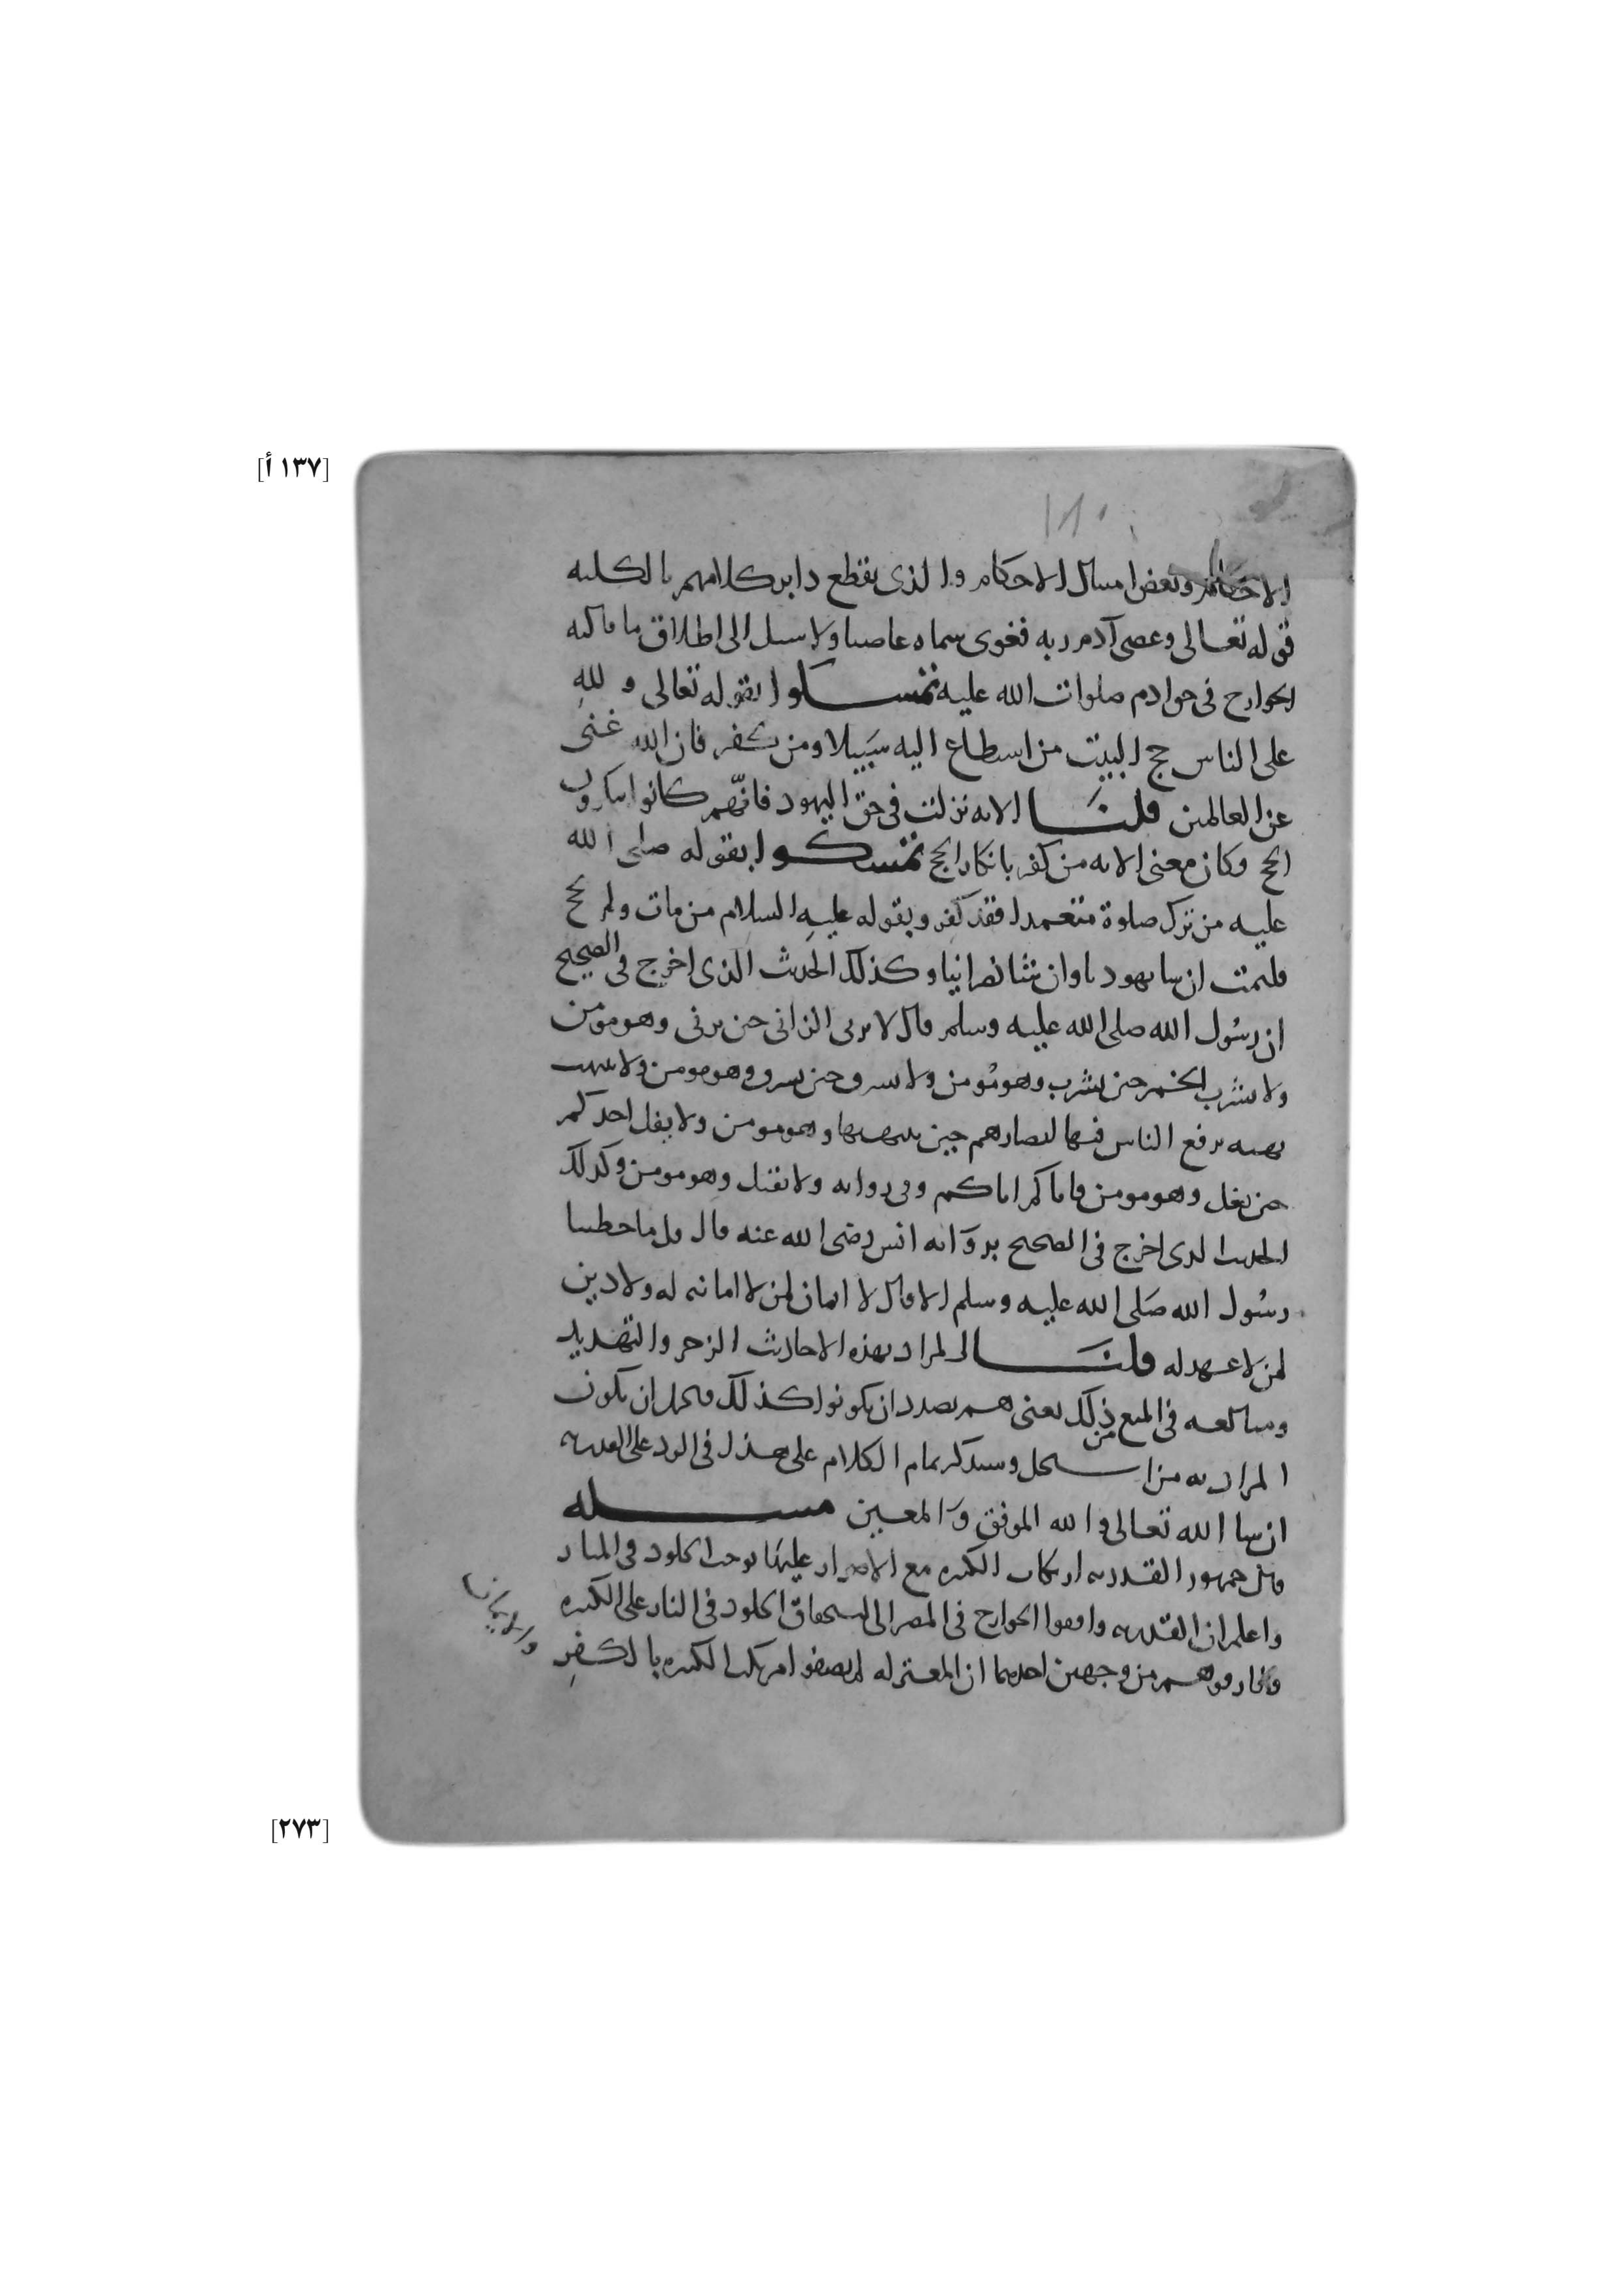 [١٣٧ أ]
١٨٠
الاحكام وبعض امثال الاحكام والذي يقطع دابر كلامهم بالكليه
قوله تعالى وعصى آدم ربه فغوى سماه عاصيا ولا سبيل الى اطلاق ما قاله
الخوارج في حق ادم صلوات الله عليه تمسكوا بقوله تعالى ولله
على الناس حج البيت من استطاع اليه سبيلا ومن كفر فان الله غني
عن العالمين قلنا الايه نزلت في حق اليهود فانهم كانوا ينكرون
الحج وكان معنى الايه من كفر بانكار الحج تمسكوا بقوله صلى الله
عليه من ترك صلوة متعمدا فقد كفر وبقوله عليه السلام من مات ولم يحج
فليمت ان شا يهوديا وان شا نصرانيا وكذلك الحديث الذي اخرج في الصحيح
ان رسول الله صلى الله عليه وسلم قال لا يزني الزاني حين يزني وهو مومن
ولا يشرب الخمر حين يشرب وهو مومن ولا يسرق حين يسرق وهو مومن ولا ينهب
نهبه يرفع الناس فيها ابصارهم حين ينهبها وهو مومن ولا يغل احدكم
حين يغل وهو مومن فاياكم اياكم وفي روايه ولا يقتل وهو مومن وكذلك
الحديث الذي اخرج في الصحيح بروايه انس رضي الله عنه قال قل ما خطبنا
رسول الله صلى الله عليه وسلم الا قال لا ايمان لمن لا امانه له ولا دين
لمن لا عهد له قلنا المراد بهذه الاحاديث الزجر والتهديد
ومبالغه في المنع من ذلك يعني هم بصدد ان يكونوا كذلك فيحمل ان يكون
المراد به من استحل وسنذكر تمام الكلام على هذا في الرد على القدريه
ان شا الله تعالى والله الموفق والمعين مسله
قال جمهور القدريه ارتكاب الكبيره مع الاصرار عليها يوجب الخلود في النار
واعلم ان القدريه وافقوا الخوارج في المصير الى استحقاق الخلود في النار على الكبيره
وفارقوهم من وجهين احدهما ان المعتزله لم يصفوا مرتكب الكبيره بالكفر
والايمان
[٢٧٣]